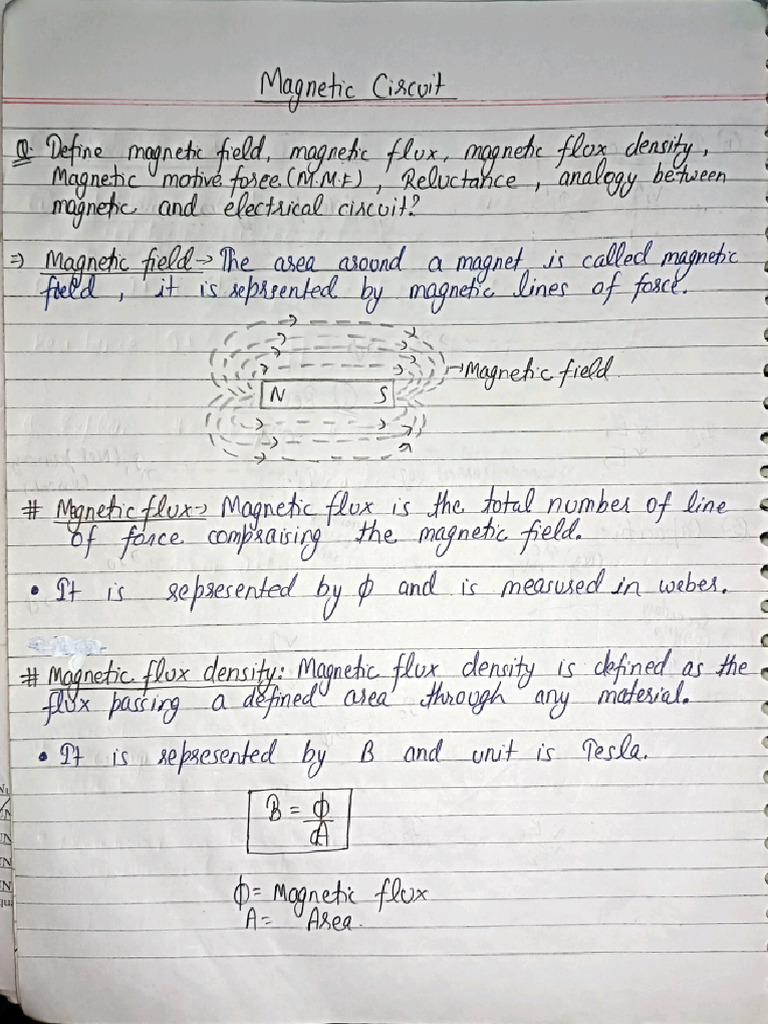 Magnetic Circuit
Q. Define magnetic field, magnetic flux, magnetic flux density,
Magnetic motive force (M.M.F), Reluctance, analogy between
magnetic and electrical circuit?
⇒ Magnetic field → The area around a magnet is called magnetic
field, it is reprsented by magnetic lines of force.
→Magnetic field
N S
# Magnetic flux→ Magnetic flux is the total number of line
of force compraising the magnetic field.
• It is represented by ϕ and is measured in weber.
# Magnetic flux density: Magnetic flux density is defined as the
flux passing a defined area through any material.
• It is represented by B and unit is Tesla.
B = ϕ/dA
ϕ= Magnetic flux
A= Area.